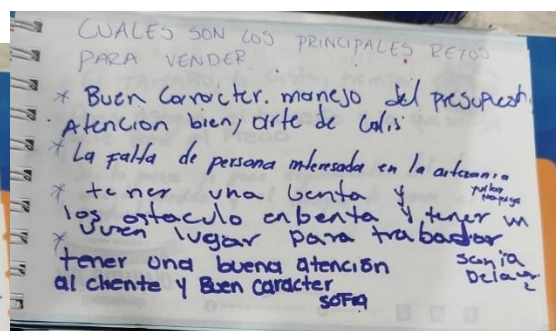 CUALES SON LOS PRINCIPALES RETOS
PARA VENDER
* Buen Caracter. manejo del presupuest.
Atencion bien, arte de
* La falta de persona interesada en la artesania
* tener una benta y
los ostaculo en benta y tener un
* vuen lugar para trabador
Sonia
tener una buena atención
al cliente y Buen caracter
SOFIA